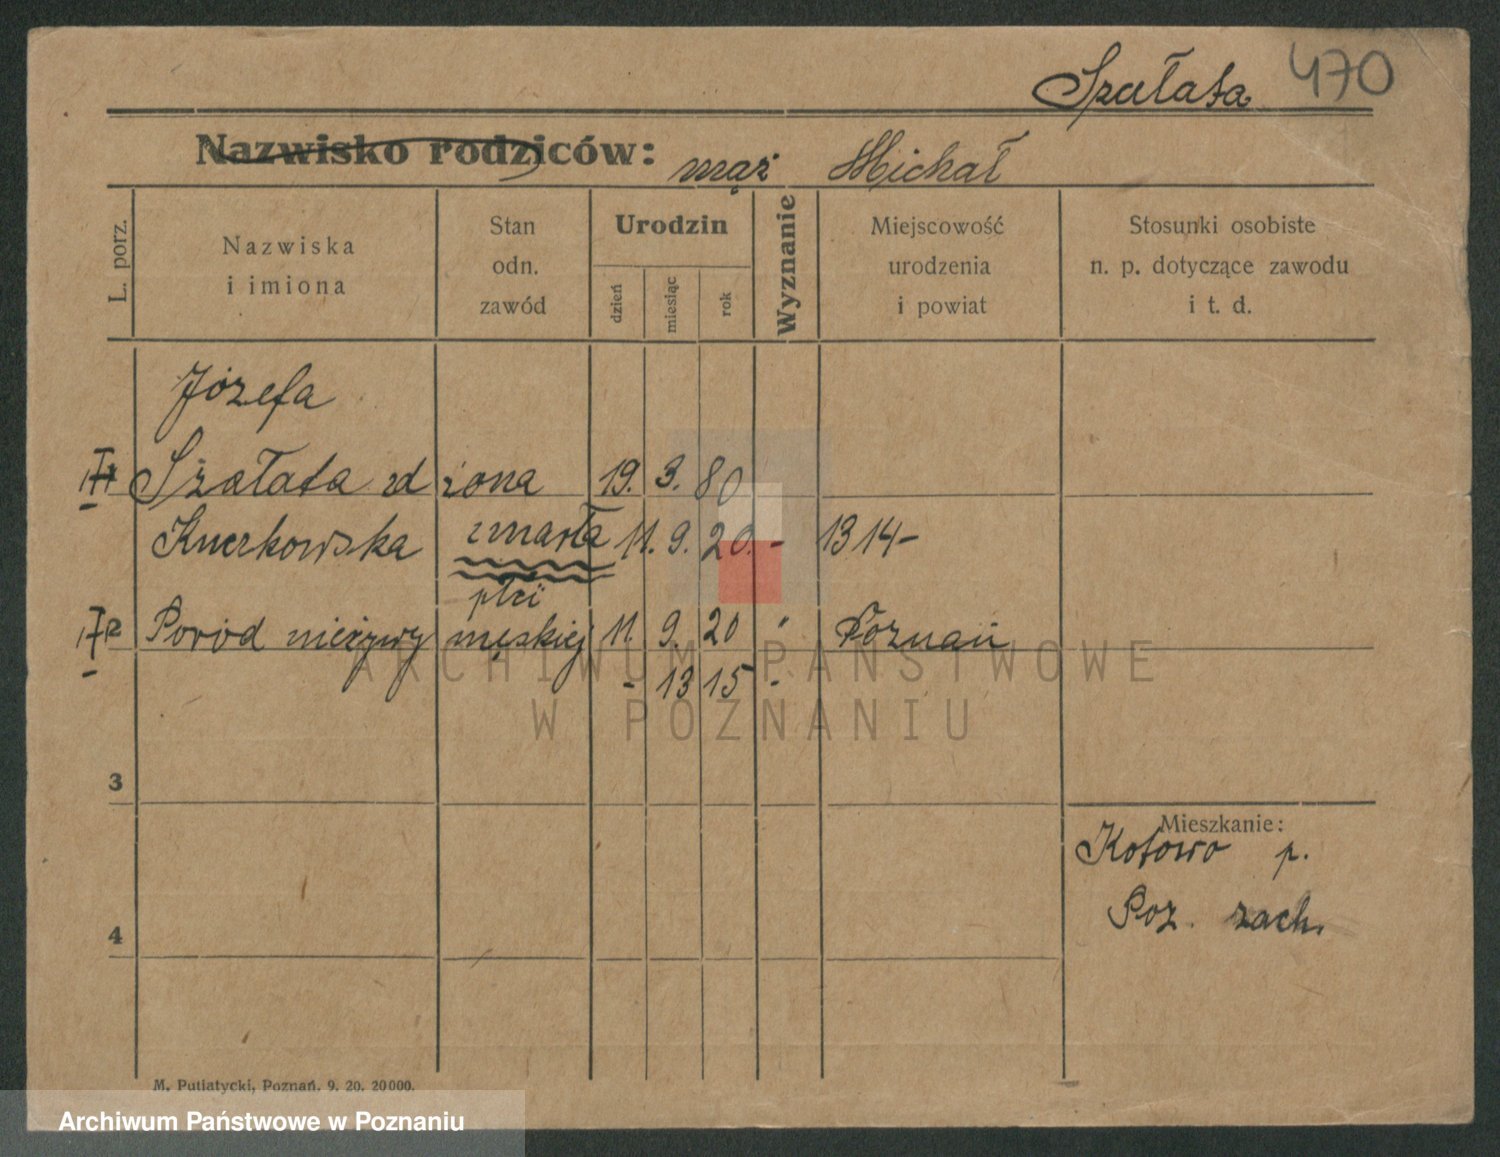 Szałata 470
Nazwisko rodziców: mąż Michał
L. porz.
Nazwiska
i imiona
Stan
odn.
zawód
Urodzin
dzień
miesiąc
rok
Wyznanie
Miejscowość
urodzenia
i powiat
Stosunki osobiste
n. p. dotyczące zawodu
i t. d.
Józefa
Szałata zd żona 19. 3. 80
Kuczkowska zmarła 11. 9. 20. - 1314-
płci
Poród nieżywy męskiej 11. 9. 20 Poznań
- 13 15 -
3
4
Mieszkanie:
Kotowo p.
Poz. zach.
ARCHIWUM PAŃSTWOWE
W POZNANIU
M. Putiatycki, Poznań. 9. 20. 20000.
Archiwum Państwowe w Poznaniu